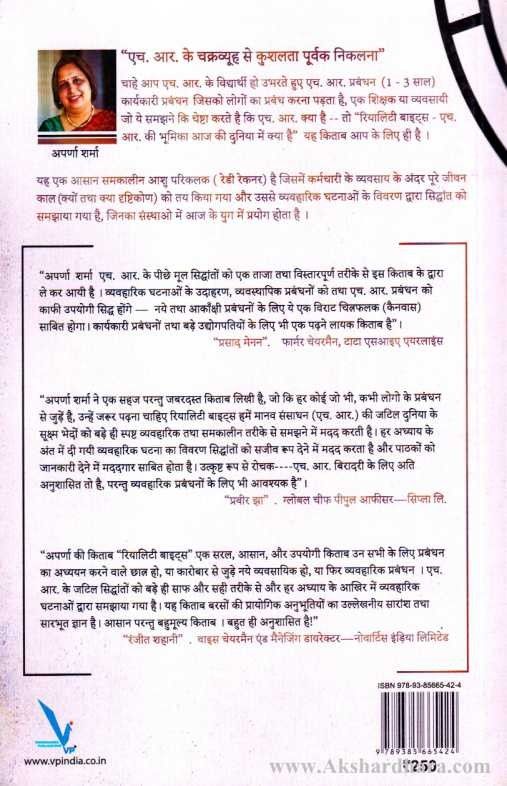 “एच. आर. के चक्रव्यूह से कुशलता पूर्वक निकलना”
चाहे आप एच. आर. के विद्यार्थी हो उभरते हुए एच. आर. प्रबंधन (1 - 3 साल)
कार्यकारी प्रबंधन जिसको लोगों का प्रबंध करना पड़ता है, एक शिक्षक या व्यवसायी
जो ये समझने कि चेष्टा करते है कि एच. आर. क्या है -- तो “रियालिटी बाइट्स - एच.
आर. की भूमिका आज की दुनिया में क्या है” यह किताब आप के लिए ही है ।
अपर्णा शर्मा
यह एक आसान समकालीन आशु परिकलक ( रेडी रेकनर) है जिसमें कर्मचारी के व्यवसाय के अंदर पूरे जीवन
काल (क्यों तथा क्या दृष्टिकोण) को तय किया गया और उससे व्यवहारिक घटनाओं के विवरण द्वारा सिद्धांत को
समझाया गया है, जिनका संस्थाओ में आज के युग में प्रयोग होता है ।
“अपर्णा शर्मा एच. आर. के पीछे मूल सिद्धांतों को एक ताजा तथा विस्तारपूर्ण तरीके से इस किताब के द्वारा
ले कर आयी है । व्यवहारिक घटनाओं के उदाहरण, व्यवस्थापिक प्रबंधनों को तथा एच. आर. प्रबंधन को
काफी उपयोगी सिद्ध होंगे — नये तथा आकाँक्षी प्रबंधनों के लिए ये एक विराट चित्रफलक (कैनवास)
साबित होगा। कार्यकारी प्रबंधनों तथा बड़े उद्योगपतियों के लिए भी एक पढ़ने लायक किताब है”।
“प्रसाद मेनन”. फार्मर चेयरमैन, टाटा एसआइए एयरलाइंस
“अपर्णा शर्मा ने एक सहज परन्तु जबरदस्त किताब लिखी है, जो कि हर कोई जो भी, कभी लोगो के प्रबंधन
से जुड़े है, उन्हें जरूर पढ़ना चाहिए रियालिटी बाइट्स हमें मानव संसाधन (एच. आर.) की जटिल दुनिया के
सूक्ष्म भेदों को बड़े ही स्पष्ट व्यवहारिक तथा समकालीन तरीके से समझने में मदद करती है। हर अध्याय के
अंत में दी गयी व्यवहारिक घटना का विवरण सिद्धांतों को सजीव रूप देने में मदद करता है और पाठकों को
जानकारी देने में मददगार साबित होता है। उत्कृष्ट रूप से रोचक----एच. आर. बिरादरी के लिए अति
अनुशासित तो है, परन्तु व्यवहारिक प्रबंधनों के लिए भी आवश्यक है”।
“प्रबीर झा” . ग्लोबल चीफ पीपुल आफीसर—सिप्ला लि.
“अपर्णा की किताब “रियालिटी बाइट्स” एक सरल, आसान, और उपयोगी किताब उन सभी के लिए प्रबंधन
का अध्ययन करने वाले छात्र हो, या कारोबार से जुड़े नये व्यवसायिक हो, या फिर व्यवहारिक प्रबंधन । एच.
आर. के जटिल सिद्धांतों को बड़े ही साफ और सही तरीके से और हर अध्याय के आखिर में व्यवहारिक
घटनाओं द्वारा समझाया गया है। यह किताब बरसों की प्रायोगिक अनुभूतियों का उल्लेखनीय सारांश तथा
सारभूत ज्ञान है। आसान परन्तु बहुमूल्य किताब । बहुत ही अनुशासित है!”
“रंजीत शहानी” . वाइस चेयरमैन एंड मैनेजिंग डायरेक्टर—नोवार्टिस इंडिया लिमिटेड
ISBN 978-93-85665-42-4
9 789385 665424
VP
www.vpindia.co.in
₹250
www.Akshardhara.com